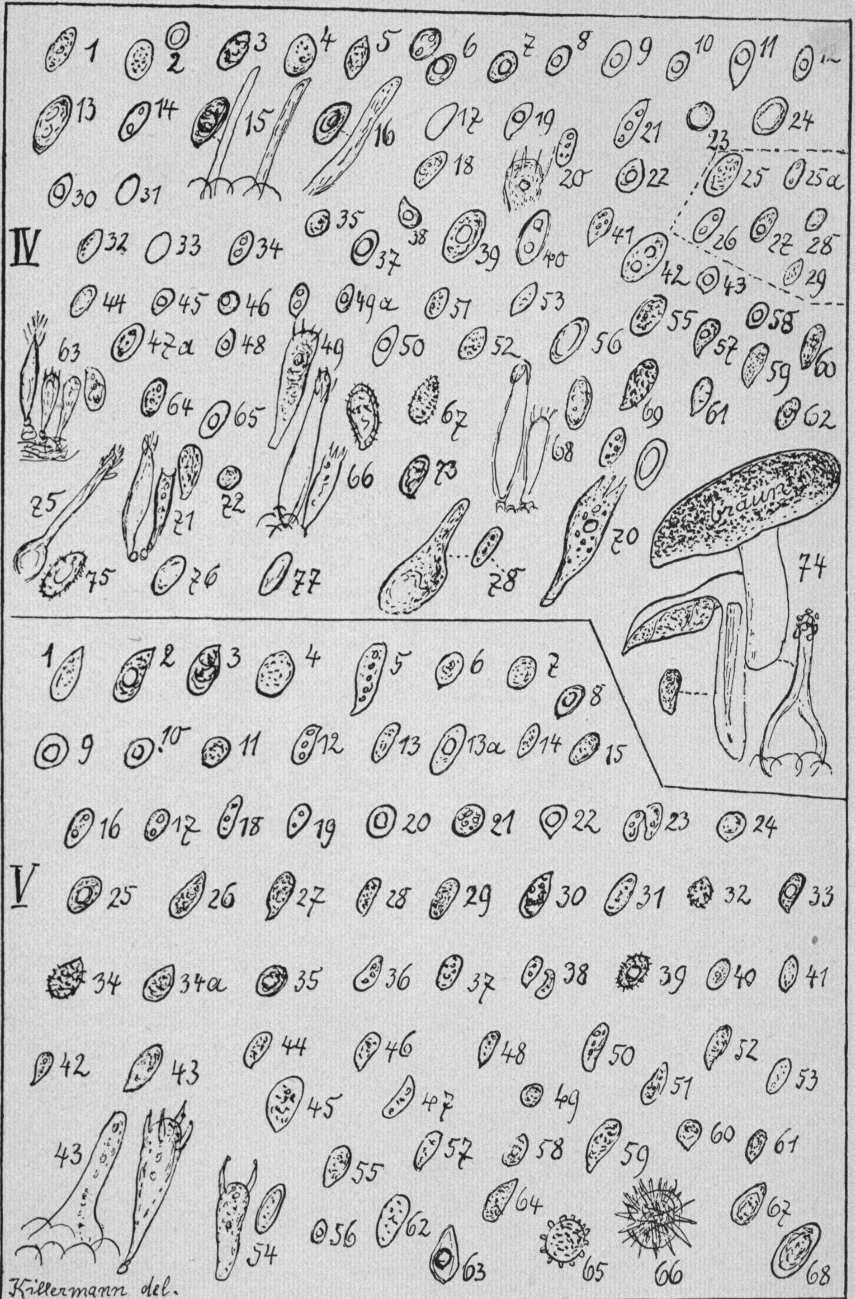 1 2 3 4 5 6 7 8 9 10 11 12
13 14 15 16 17 19 21 23 24
18 20 22 25 25a
30 31 35 38 41 26 27 28
IV 32 33 34 37 39 40 42 43 29
44 45 46 49a 51 53 55 58
63 47a 48 49 50 52 56 57 59 60
64 65 67 68 69 61 62
75 71 72 66 73 70 braun
75 76 77 78 74
1 2 3 4 5 6 7 8
9 10 11 12 13 13a 14 15
16 17 18 19 20 21 22 23 24
V 25 26 27 28 29 30 31 32 33
34 34a 35 36 37 38 39 40 41
42 43 44 46 48 50 52 53
45 47 49 51
43 55 57 58 59 60 61
54 56 62 63 64 65 66 67 68
Killermann del.